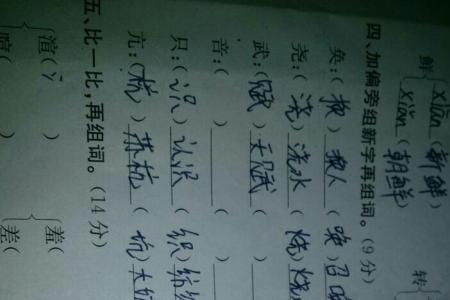 鲜 xiān (新鲜) 转
xiān (朝鲜)
四、加偏旁组新字再组词。(9分)
奂:(换) 换人 (唤) 召唤
尧:(浇) 浇水 (烧) 烧
武:(赋) 天赋 (
音:( ) (
只:(识) 认识 (织) 纺
亢:(杭) 苏杭 (坑) 大坑
五、比一比,再组词。(14分)
渲(氵 ) 羞(
喧( ) 差(